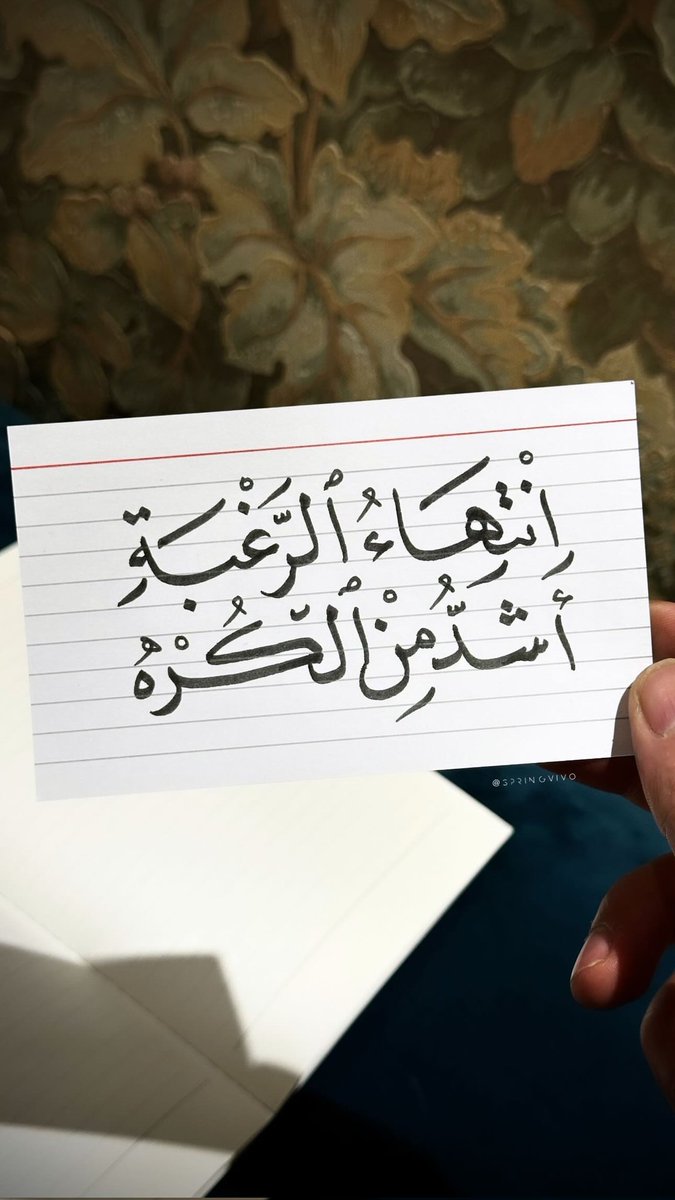 اِنْتِهَاءُ ٱلرَّغْبَةِ
أَشَدُّ مِنْ ٱلكُرْهُ
@SPRINGVIVO